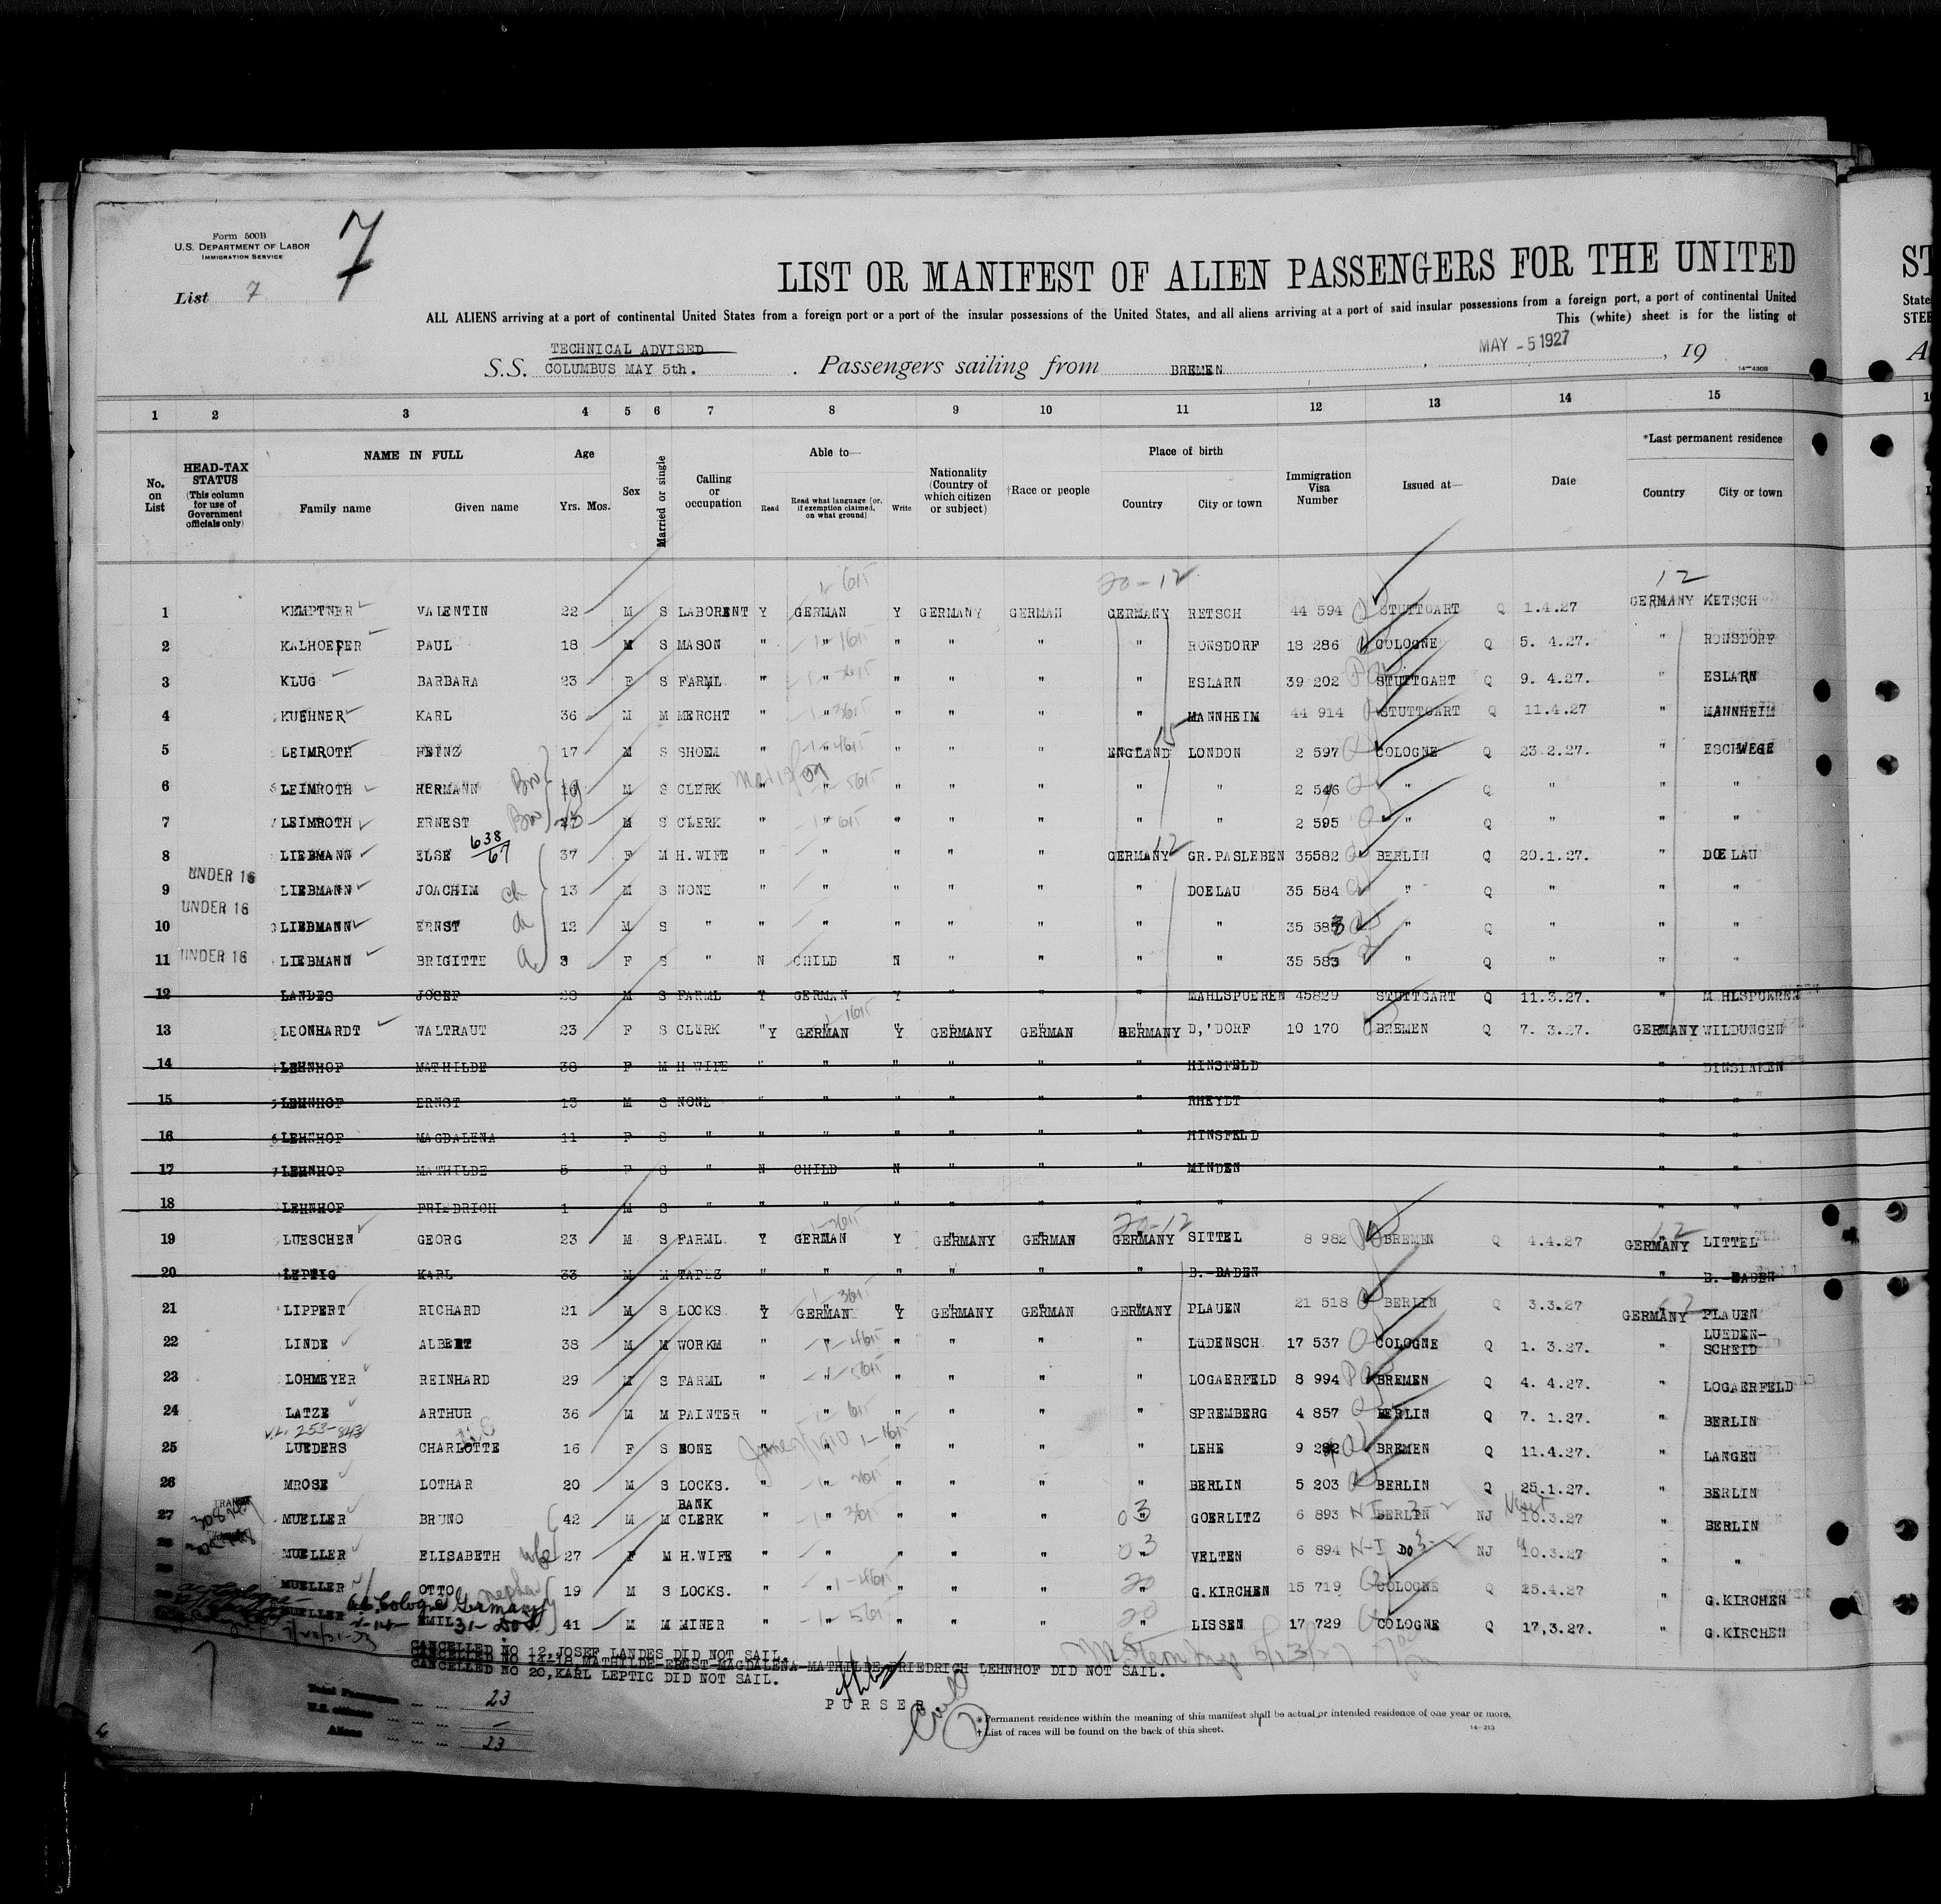 Form 500B
U.S. DEPARTMENT OF LABOR
IMMIGRATION SERVICE
7
List 7
LIST OR MANIFEST OF ALIEN PASSENGERS FOR THE UNITED
ST
ALL ALIENS arriving at a port of continental United States from a foreign port or a port of the insular possessions of the United States, and all aliens arriving at a port of said insular possessions from a foreign port, a port of continental United
State
This (white) sheet is for the listing of
STEE
TECHNICAL ADVISED
S.S. COLUMBUS MAY 5th. . Passengers sailing from BREMEN , MAY -5 1927 , 19
A
14—430B
1 2 3 4 5 6 7 8 9 10 11 12 13 14 15
No. on List
HEAD-TAX STATUS (This column for use of Government officials only)
NAME IN FULL
Family name Given name
Age
Yrs. Mos.
Sex
Married or single
Calling or occupation
Able to—
Read
Read what language [or, if exemption claimed, on what ground]
Write
Nationality (Country of which citizen or subject)
†Race or people
Place of birth
Country City or town
Immigration Visa Number
Issued at—
Date
*Last permanent residence
Country City or town
20-12 12
1 KEMPTNER VALENTIN 22 M S LABORENT Y GERMAN Y GERMANY GERMAN GERMANY RETSCH 44 594 STUTTGART Q 1.4.27 GERMANY KETSCH
2 KALHOEFER PAUL 18 M S MASON " " " " " " RONSDORF 18 286 COLOGNE Q 5. 4.27. " RONSDORF
3 KLUG BARBARA 23 F S FARML " " " " " " ESLARN 39 202 STUTTGART Q 9. 4.27. " ESLARN
4 KUEHNER KARL 36 M M MERCHT " " " " " " MANNHEIM 44 914 STUTTGART Q 11.4.27 " MANNHEIM
5 LEIMROTH HEINZ 17 M S SHOEM " " " " " ENGLAND LONDON 2 597 COLOGNE Q 23.2.27. " ESCHWEGE
6 LEIMROTH HERMANN Bro M S CLERK " " " " " " " 2 546 " Q " " "
7 LEIMROTH ERNEST Bro M S CLERK " " " " " " " 2 595 " Q " " "
638/67
8 LIEBMANN ELSE 37 F M H.WIFE " " " " " GERMANY 12 GR.PASLEBEN 35582 BERLIN Q 20.1.27. " DOELAU
UNDER 16
9 LIEBMANN JOACHIM ch 13 M S NONE " " " " " " DOELAU 35 584 " Q " " "
UNDER 16
10 LIEBMANN ERNST ch 12 M S " " " " " " " " 35 583 " Q " " "
11 UNDER 16 LIEBMANN BRIGITTE F S " N CHILD N " " " " 35 585 " Q " " "
12 LANDES JOSEF 28 M S FARML Y GERMAN Y " " " MAHLSPUEREN 45829 STUTTGART Q 11.3.27. " MAHLSPUEREN
13 LEONHARDT WALTRAUT 23 F S CLERK Y GERMAN Y GERMANY GERMAN GERMANY D,'DORF 10 170 BREMEN Q 7. 3.27. GERMANY WILDUNGEN
14 LEHNHOF MATHILDE 38 F M H WIFE " " " " " " HINSFELD " DINSLAKEN
15 LEHNHOF ERNST 13 M S NONE " " " " " " RHEYDT " "
16 LEHNHOF MAGDALENA 11 F S " " " " " " " HINSFELD " "
17 LEHNHOF MATHILDE 5 F S " N CHILD N " " " MINDEN " "
18 LEHNHOF FRIEDRICH 1 M S " " " " " " " " " "
20-12 12
19 LUESCHEN GEORG 23 M S FARML Y GERMAN Y GERMANY GERMAN GERMANY SITTEL 8 982 BREMEN Q 4.4.27 GERMANY LITTEL
20 LEPTIG KARL 33 M M TAPEZ " " " " " " B.-BADEN " B.-BADEN
21 LIPPERT RICHARD 21 M S LOCKS Y GERMAN Y GERMANY GERMAN GERMANY PLAUEN 21 518 BERLIN Q 3.3.27 GERMANY PLAUEN
22 LINDE ALBERT 38 M M WORKM " " " " " " LUDENSCH. 17 537 COLOGNE Q 1. 3.27. " LUEDEN-SCHEID
23 LOHMEYER REINHARD 29 M S FARML " " " " " " LOGAERFELD 8 994 BREMEN Q 4. 4.27. " LOGAERFELD
24 LATZE ARTHUR 36 M M PAINTER " " " " " " SPREMBERG 4 857 BERLIN Q 7. 1.27. " BERLIN
V.L. 253-843
25 LUEDERS CHARLOTTE 16 F S NONE " " " " " " LEHE BREMEN Q 11.4.27 " LANGEN
26 MROSE LOTHAR 20 M S LOCKS. " " " " " " BERLIN 5 203 BERLIN Q 25.1.27. " BERLIN
27 MUELLER BRUNO 42 M M BANK CLERK " " " " " 03 GOERLITZ 6 893 N I BERLIN NJ 10.3.27 " BERLIN
28 MUELLER ELISABETH wife 27 F M H.WIFE " " " " " 03 VELTEN 6 894 N-I DO NJ 10.3.27 " "
MUELLER OTTO nephew 19 M S LOCKS. " " " " " 20 G.KIRCHEN 15 719 COLOGNE Q 25.4.27 " G.KIRCHEN
Cologne Germany
MUELLER EMIL 41 M M MINER " " " " " 20 LISSEN 17 729 COLOGNE Q 17,3.27. " G.KIRCHEN
CANCELLED NO 12, JOSEF LANDES DID NOT SAIL.
CANCELLED NO 14-18 MATHILDE-ERNST-MAGDALENA-MATHILDE-FRIEDRICH LEHNHOF DID NOT SAIL.
CANCELLED NO 20, KARL LEPTIC DID NOT SAIL.
PURSER
Total Passengers ... ... 23
U.S. citizens ... ... ... –
Aliens ... ... ... 23
* Permanent residence within the meaning of this manifest shall be actual or intended residence of one year or more.
† List of races will be found on the back of this sheet.
14—213